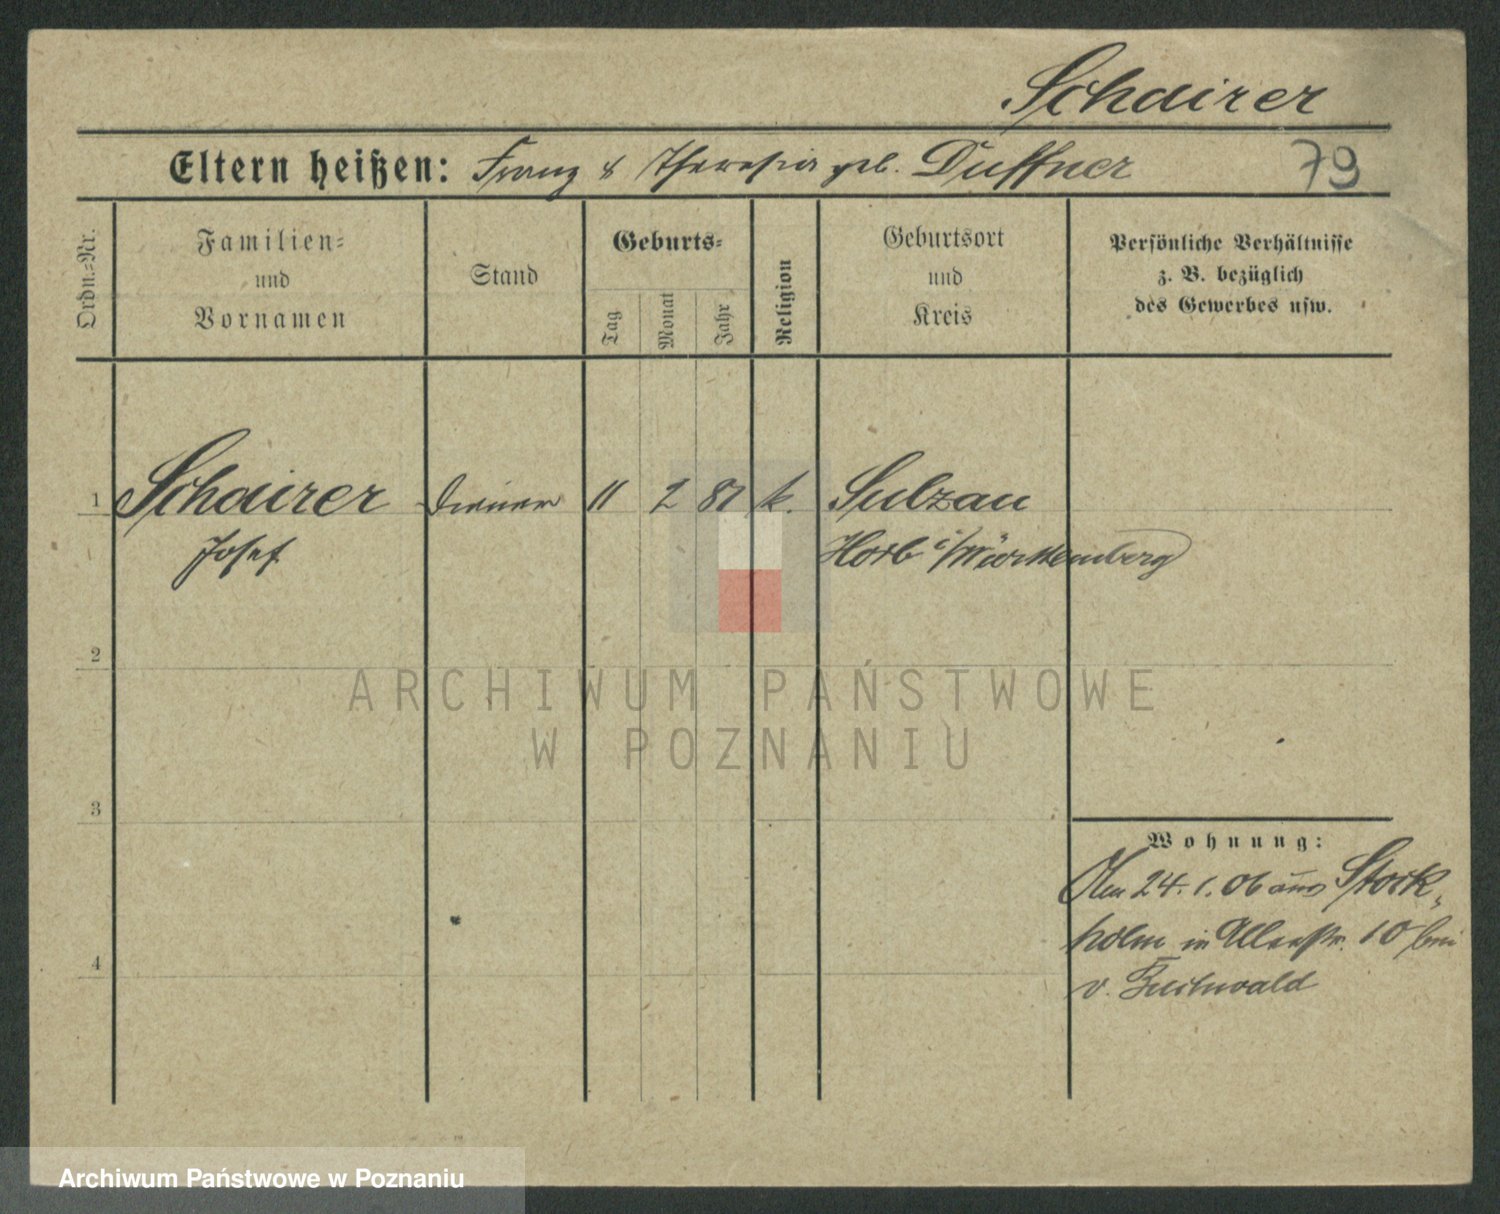 Schairer
Eltern heißen: Franz & Theresia geb. Duffner
79
Ordn.=Nr.
Familien=
und
Vornamen
Stand
Geburts=
Tag
Monat
Jahr
Religion
Geburtsort
und
Kreis
Persönliche Verhältnisse
z. B. bezüglich
des Gewerbes usw.
1 Schairer Diener 11 2 81 k. Sulzau
Josef Horb i/Württemberg
2
ARCHIWUM PAŃSTWOWE
W POZNANIU
3
Wohnung:
24. 1. 06 aus Stock-
holm in 10 bei
v.
4
Archiwum Państwowe w Poznaniu